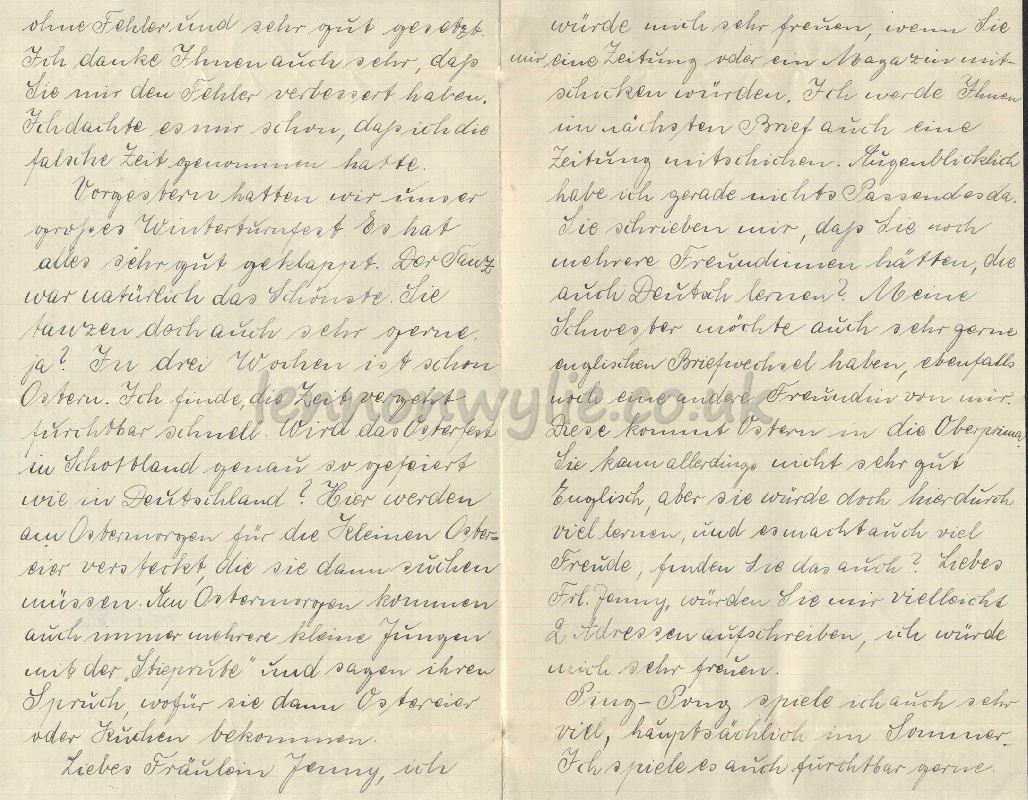 ohne Fehler und sehr gut gesetzt.
Ich danke Ihnen auch sehr, daß
Sie mir den Fehler verbessert haben.
Ich dachte es mir schon, daß ich die
falsche Zeit genommen hatte.
Vorgestern hatten wir unser
großes Winterturnfest Es hat
alles sehr gut geklappt. Der Tanz
war natürlich das Schönste. Sie
tanzen doch auch sehr gerne,
ja? In drei Wochen ist schon
Ostern. Ich finde, die Zeit vergeht
furchtbar schnell. Wird das Osterfest
in Schottland genau so gefeiert
wie in Deutschland? Hier werden
am Ostermorgen für die Kleinen Oster=
eier versteckt, die sie dann suchen
müssen. Am Ostermorgen kommen
auch immer mehrere kleine Jungen
mit der „Stieprute" und sagen ihren
Spruch, wofür sie dann Ostereier
oder Kuchen bekommen.
Liebes Fräulein Jenny, ich
würde mich sehr freuen, wenn Sie
mir eine Zeitung oder ein Magazin mit-
schicken würden. Ich werde Ihnen
im nächsten Brief auch eine
Zeitung mitschicken. Augenblicklich
habe ich gerade nichts Passendes da.
Sie schrieben mir, daß Sie noch
mehrere Freundinnen hätten, die
auch Deutsch lernen? Meine
Schwester möchte auch sehr gerne
englischen Briefwechsel haben, ebenfalls
noch eine andere Freundin von mir.
Diese kommt Ostern in die Oberprima.
Sie kann allerdings nicht sehr gut
Englisch, aber sie würde doch hierdurch
viel lernen, und es macht auch viel
Freude, finden Sie das auch? Liebes
Frl. Jenny, würden Sie mir vielleicht
2 Adressen aufschreiben, ich würde
mich sehr freuen.
Ping-Pong spiele ich auch sehr
viel, hauptsächlich im Sommer.
Ich spiele es auch furchtbar gerne.
lennonwylie.co.uk